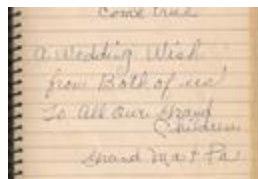 Come true
A Wedding Wish
from Both of us
To All Our Grand
Children
Grand Ma + Pa